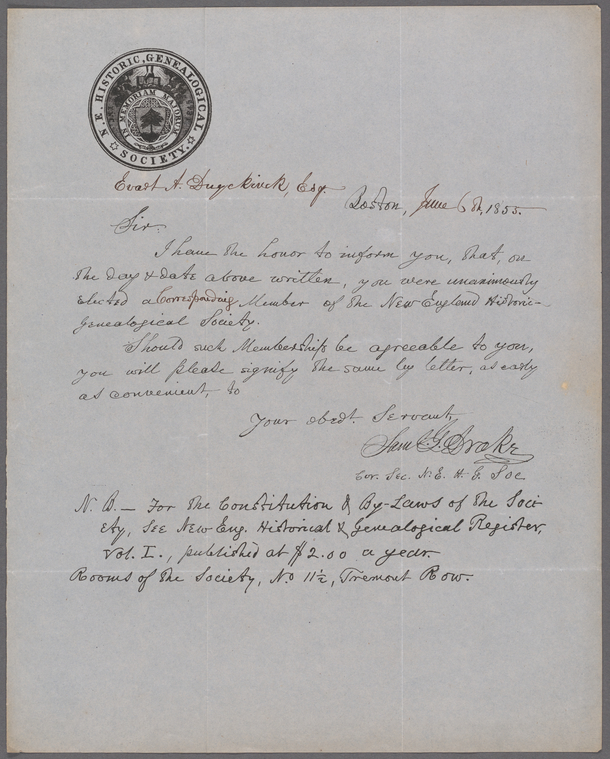 N. E. HISTORIC, GENEALOGICAL, SOCIETY.
IN MEMORIAM MAJORUM
Evart A. Duyckinck, Esq.
Boston, June 6th, 1855.
Sir:
I have the honor to inform you, that, on
the day & date above written, you were unanimously
elected a Corresponding Member of the New England Historic-
Genealogical Society.
Should such Membership be agreeable to you,
you will please signify the same by letter, as early
as convenient, to
Your obedt. Servant,
Saml. G. Drake
Cor. Sec. N. E. H. G. Soc
N. B. — For the Constitution & By-Laws of the Soci-
ety, See New Eng. Historical & Genealogical Register,
Vol. I., published at $2.00 a year.
Rooms of the Society, No 11½, Tremont Row.